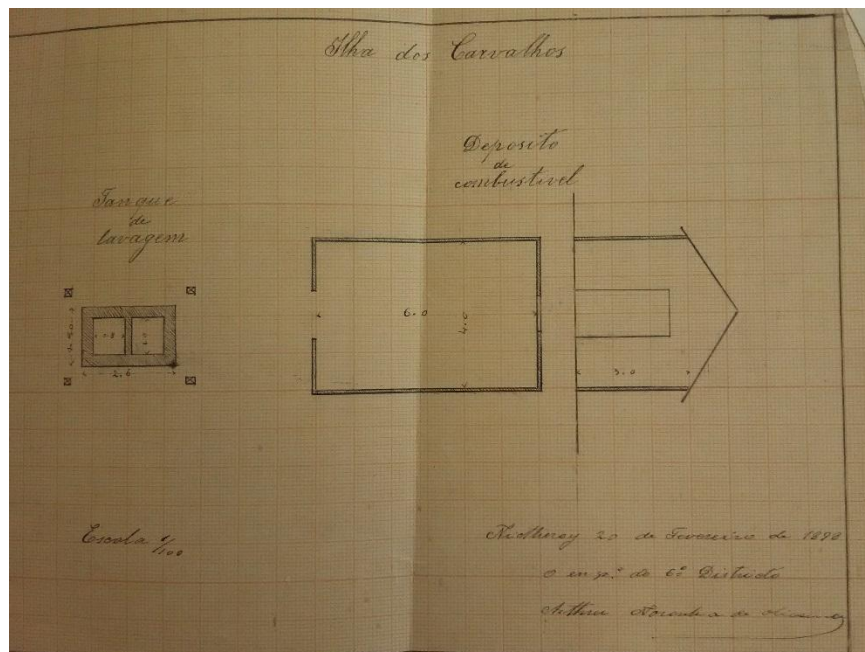 Ilha dos Carvalhos
Deposito
de
combustivel
Tanque
de
lavagem
6.0
4.0
3.0
2.6
Escala 1/100
Nictheroy 20 de Fevereiro de 189
o engº. do 6º Districto
Arthur de